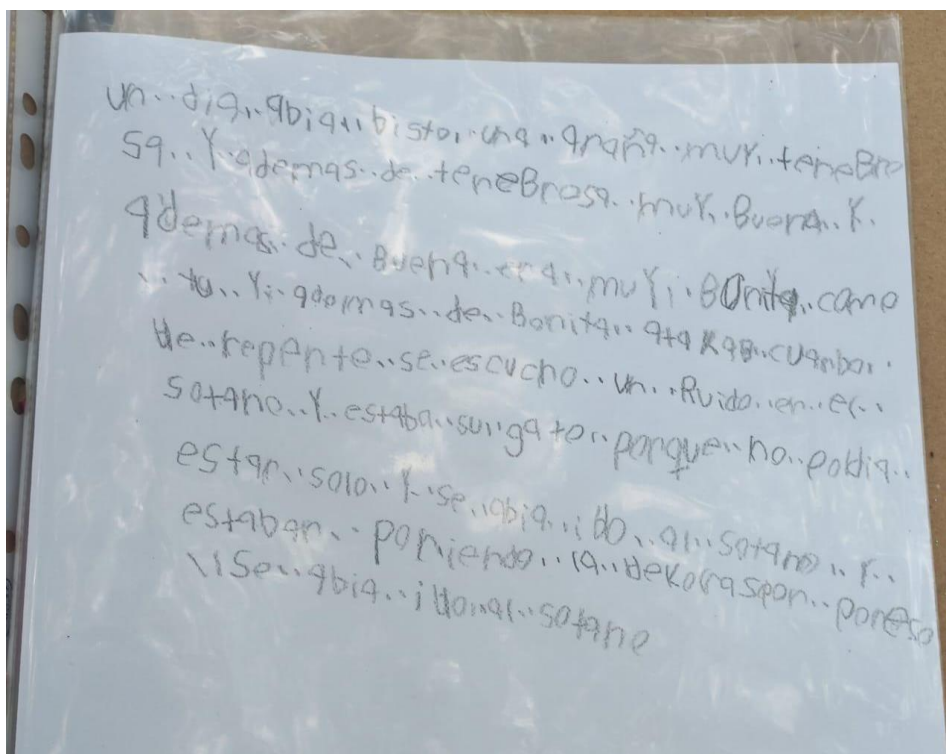 un.. dia.. abia.. bisto.. una.. araña.. muy.. teneBro
sa.. Y.. ademas.. de.. teneBrosa.. muY.. Buena.. Y.
ademas.. de.. Buena.. era.. muy.. BOnita.. como
.. tu.. Y.. ademas.. de.. Bonita.. cuanbo..
de.. repente.. se.. escucho.. un.. Ruido.. en.. el..
sotano.. Y.. estaba.. su.. gato.. porque.. no.. podia..
estar.. solo.. Y.. se.. abia.. ido.. al.. sotano.. Y..
estaban.. poniendo.. la.. dekoraspon.. poreso
se.. abia.. ido.. al.. sotano